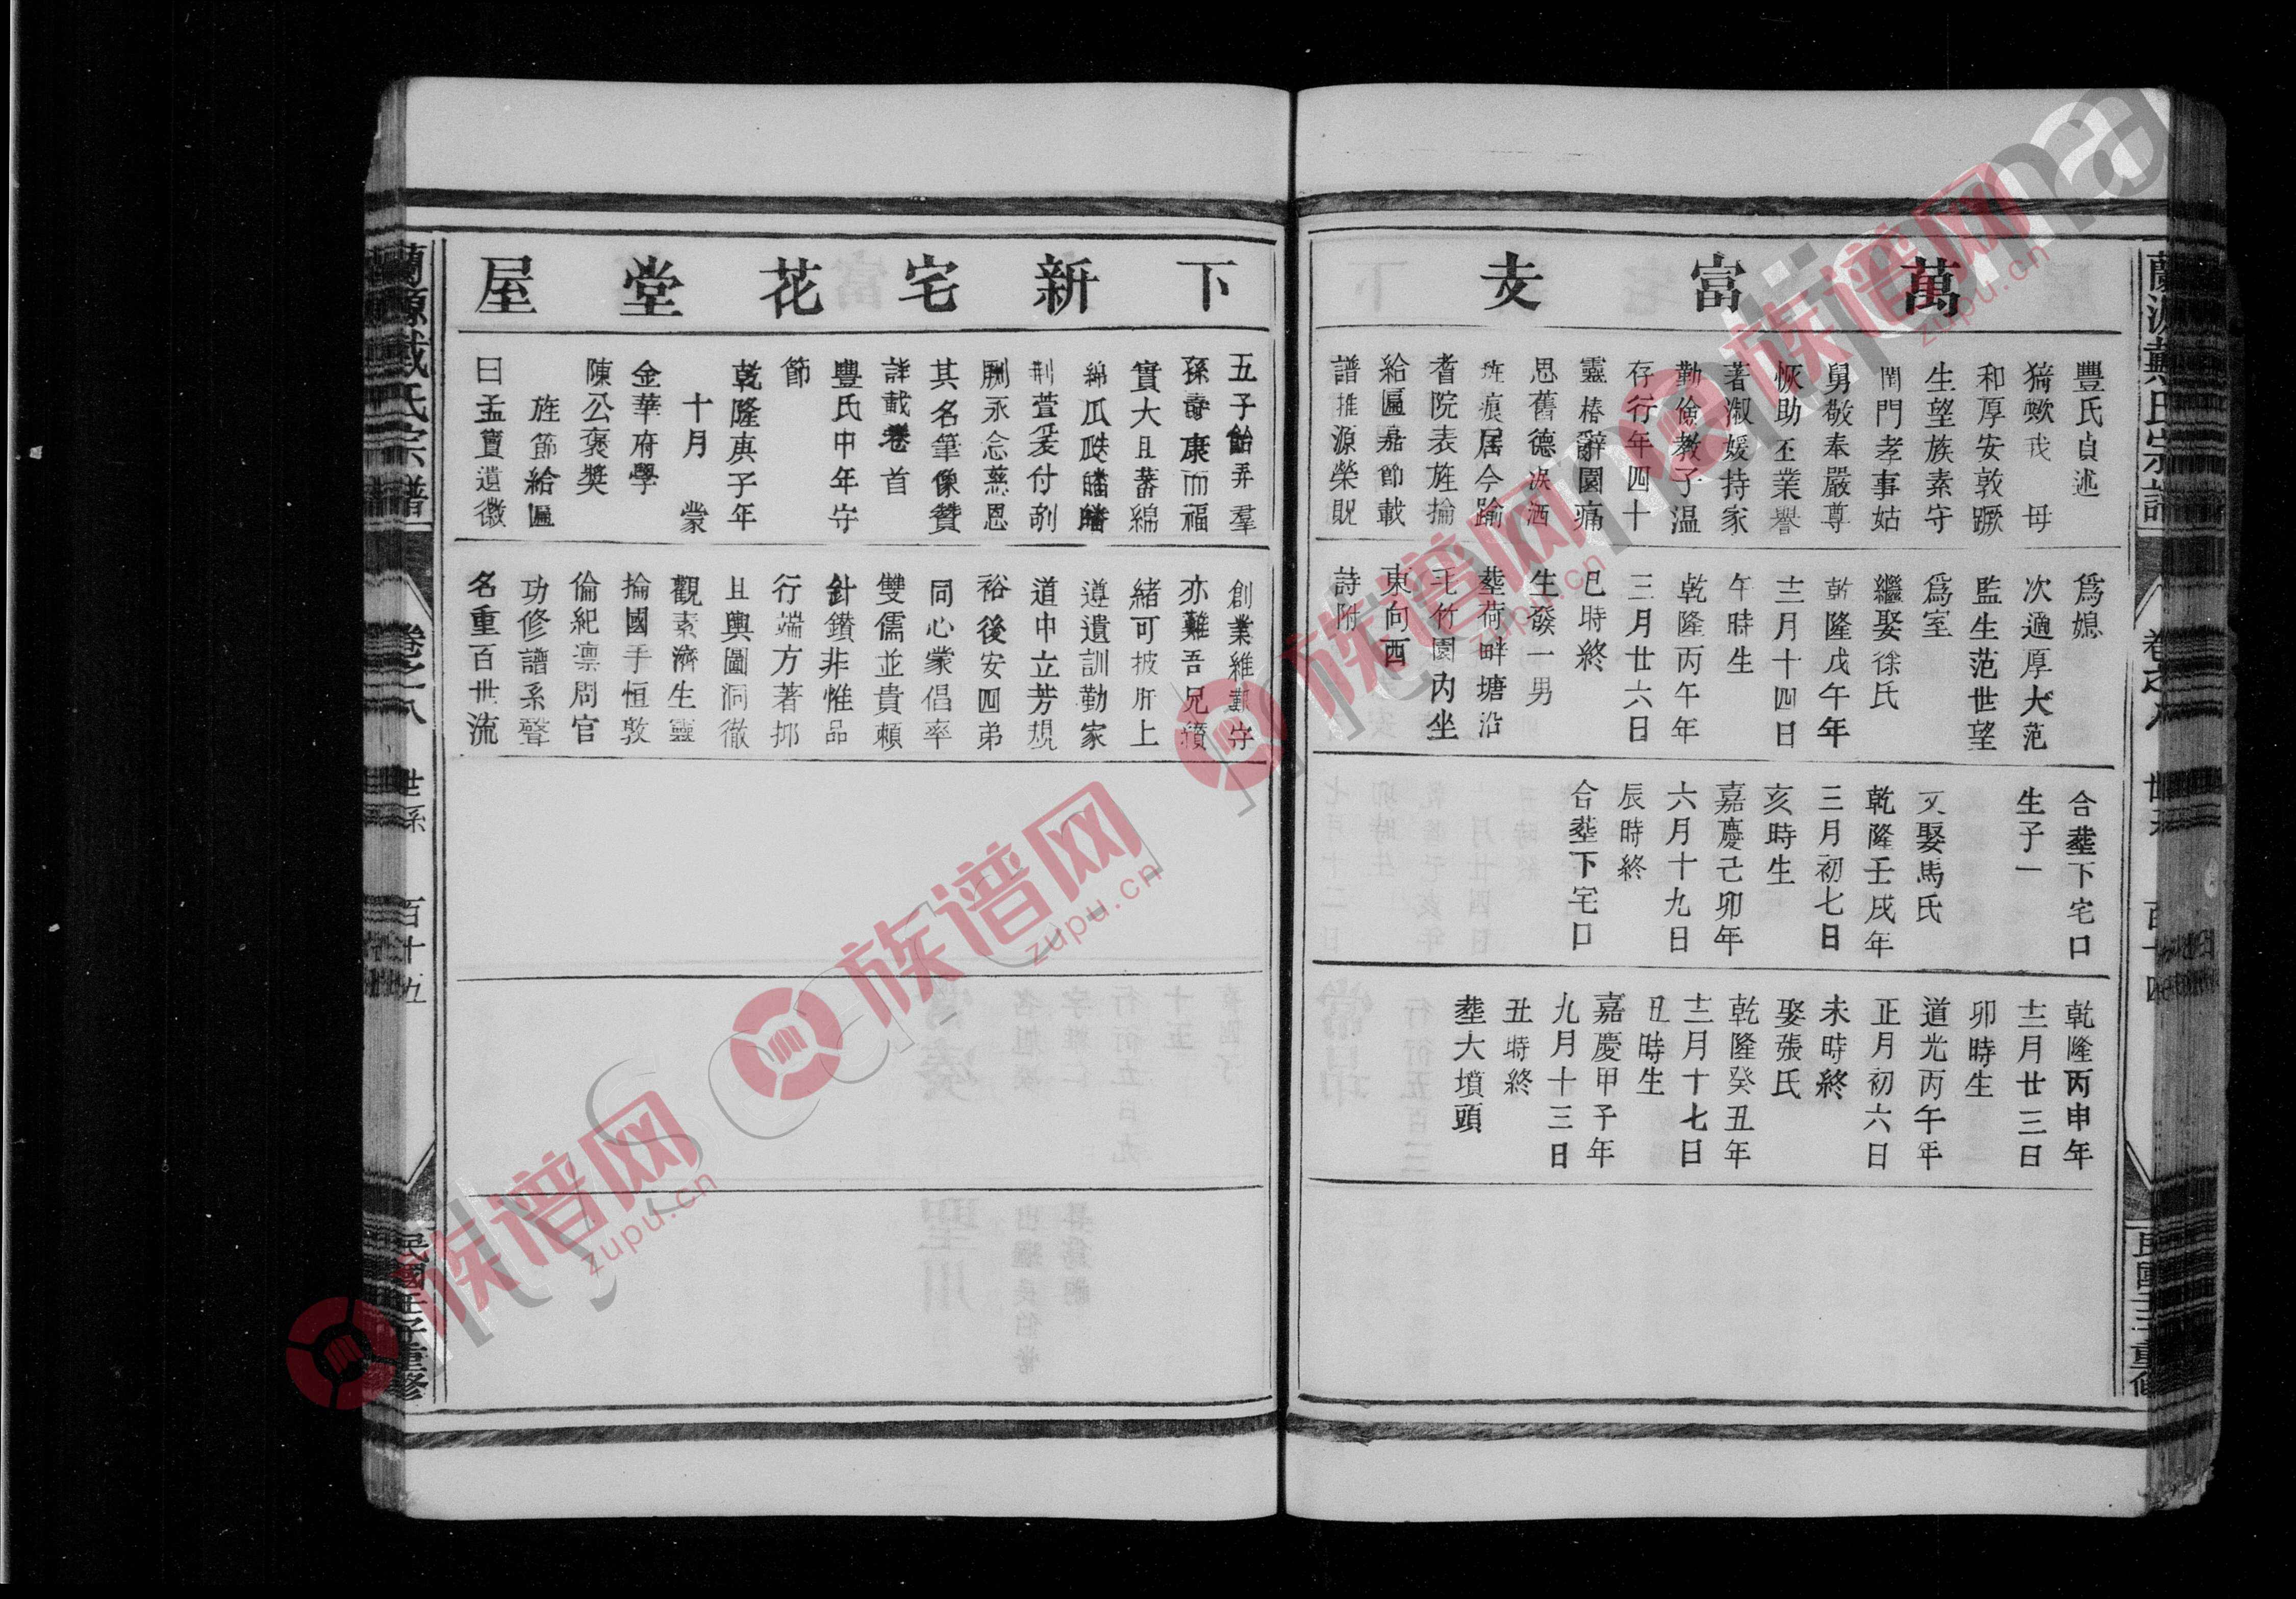 萬富支
豐氏貞述
猗歟我 母
和厚安敦蹶
生望族素守
閨門孝事姑
舅敬奉嚴尊
恢助丕業譽
著淑媛持家
勤儉教子温
存行年四十
靈椿辭園痛
思舊德淚洒
班痕居今踰
耆院表旌掄
給匾嘉節載
譜推源榮貺
爲媳
次適厚大范
監生范世望
爲室
繼娶徐氏
乾隆戊午年
十二月十四日
午時生
乾隆丙午年
三月廿六日
巳時終
生發一男
塟荷畔塘沿
毛竹園內坐
東向西
詩附
合塟下宅口
生子一
又娶馬氏
乾隆壬戌年
三月初七日
亥時生
嘉慶己卯年
六月十九日
辰時終
合塟下宅口
乾隆丙申年
十二月廿三日
卯時生
道光丙午年
正月初六日
未時終
娶張氏
乾隆癸丑年
十二月十七日
丑時生
嘉慶甲子年
九月十三日
丑時終
塟大墳頭
下新宅花堂屋
五子飴弄羣
孫壽康而福
實大且蕃綿
綿瓜瓞皤皤
荆萱爰付剞
劂永念慈恩
其名筆像贊
詳載卷首
豐氏中年守
節
乾隆庚子年
十月 蒙
金華府學
陳公褒奬
旌節給匾
曰孟寶遺徽
創業維艱守
亦難吾兄纘
緒可披肝上
遵遺訓勤家
道中立芳規
裕後安四弟
同心蒙倡率
雙儒並貴頼
針鑚非惟品
行端方著抑
且輿圖洞徹
觀素濟生靈
掄國手恒敦
倫紀凛周官
功修譜系聲
名重百世流
蘭源戴氏宗譜
卷之八
世系
百十五
民國壬子重修
族谱网
zupu.cn